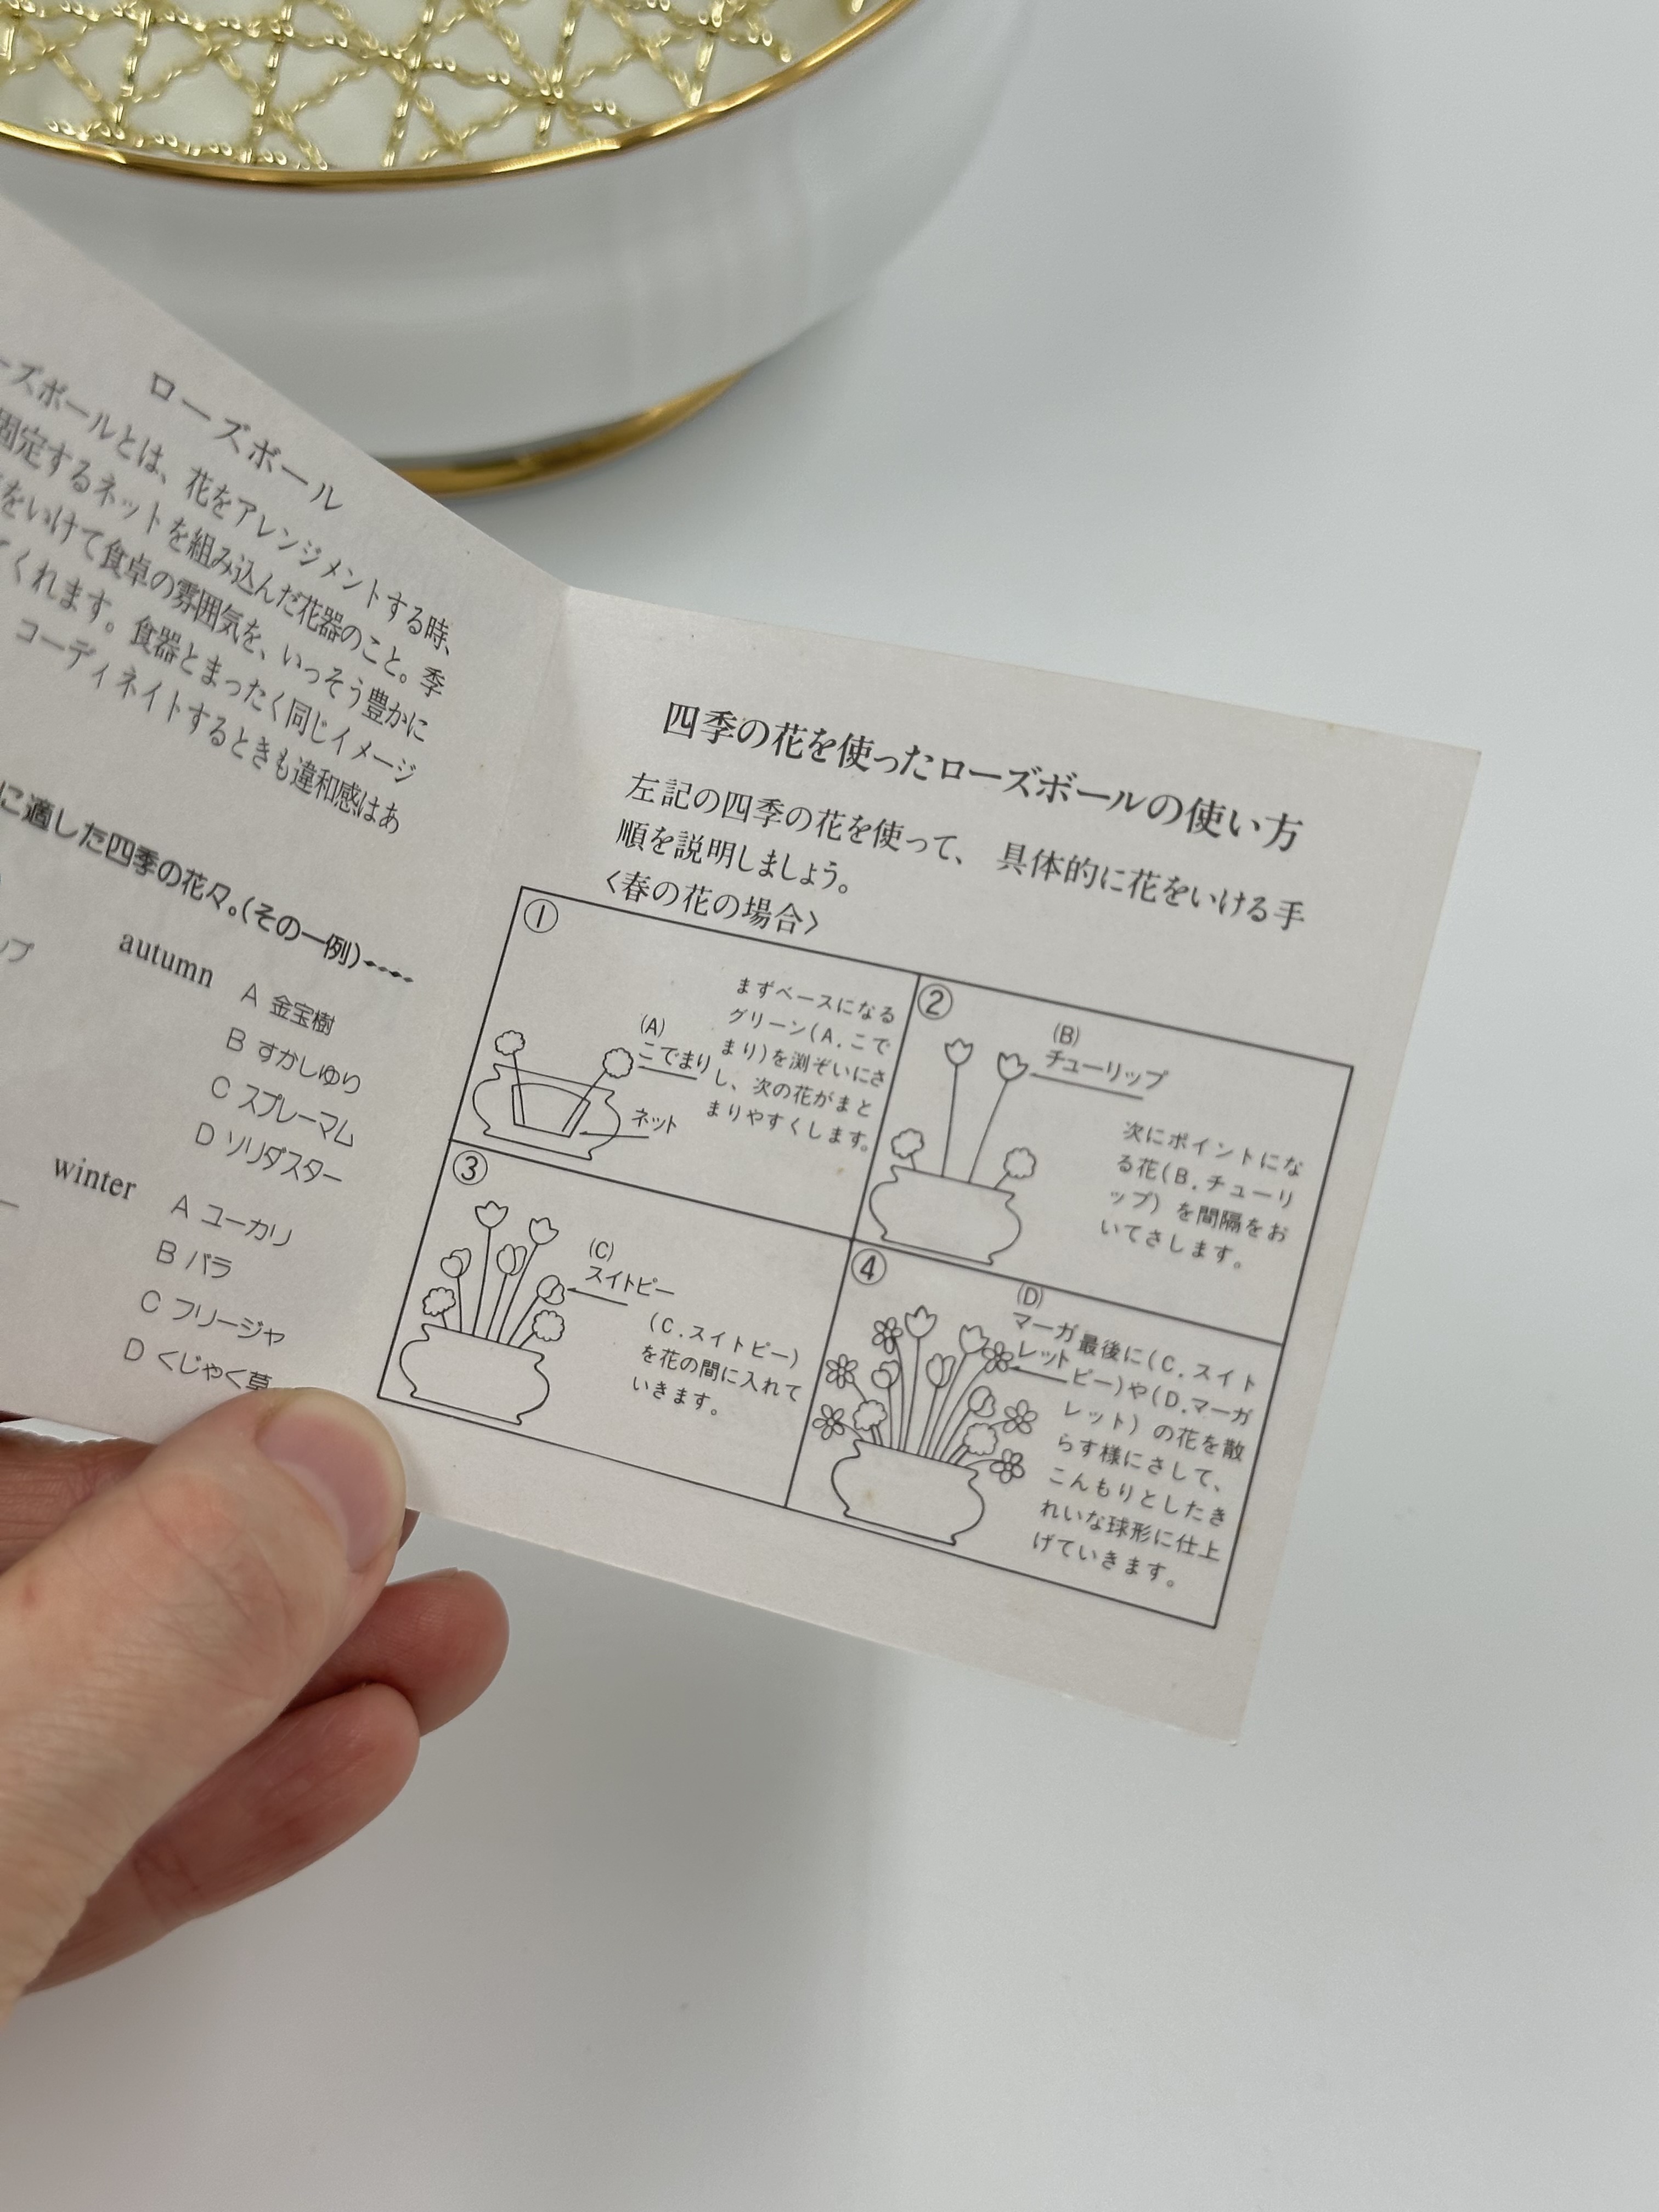 ローズボール
ーズボールとは、花をアレンジメントする時、
固定するネットを組み込んだ花器のこと。季
をいけて食卓の雰囲気を、いっそう豊かに
てくれます。食器とまったく同じイメージ
コーディネイトするときも違和感はあ
に適した四季の花々。(その一例)
ップ
autumn A 金宝樹
B すかしゆり
C スプレーマム
D ソリダスター
winter A ユーカリ
B バラ
C フリージヤ
D くじゃく草
四季の花を使ったローズボールの使い方
左記の四季の花を使って、具体的に花をいける手
順を説明しましょう。
〈春の花の場合〉
①
(A)
こでまり
ネット
まずベースになる
グリーン(A.こで
まり)を渕ぞいにさ
し、次の花がまと
まりやすくします。
②
(B)
チューリップ
次にポイントにな
る花(B.チューリ
ップ)を間隔をお
いてさします。
③
(C)
スイトピー
(C.スイトピー)
を花の間に入れて
いきます。
④
(D)
マーガ
レット
最後に(C.スイト
ピー)や(D.マーガ
レット)の花を散
らす様にさして、
こんもりとしたき
れいな球形に仕上
げていきます。